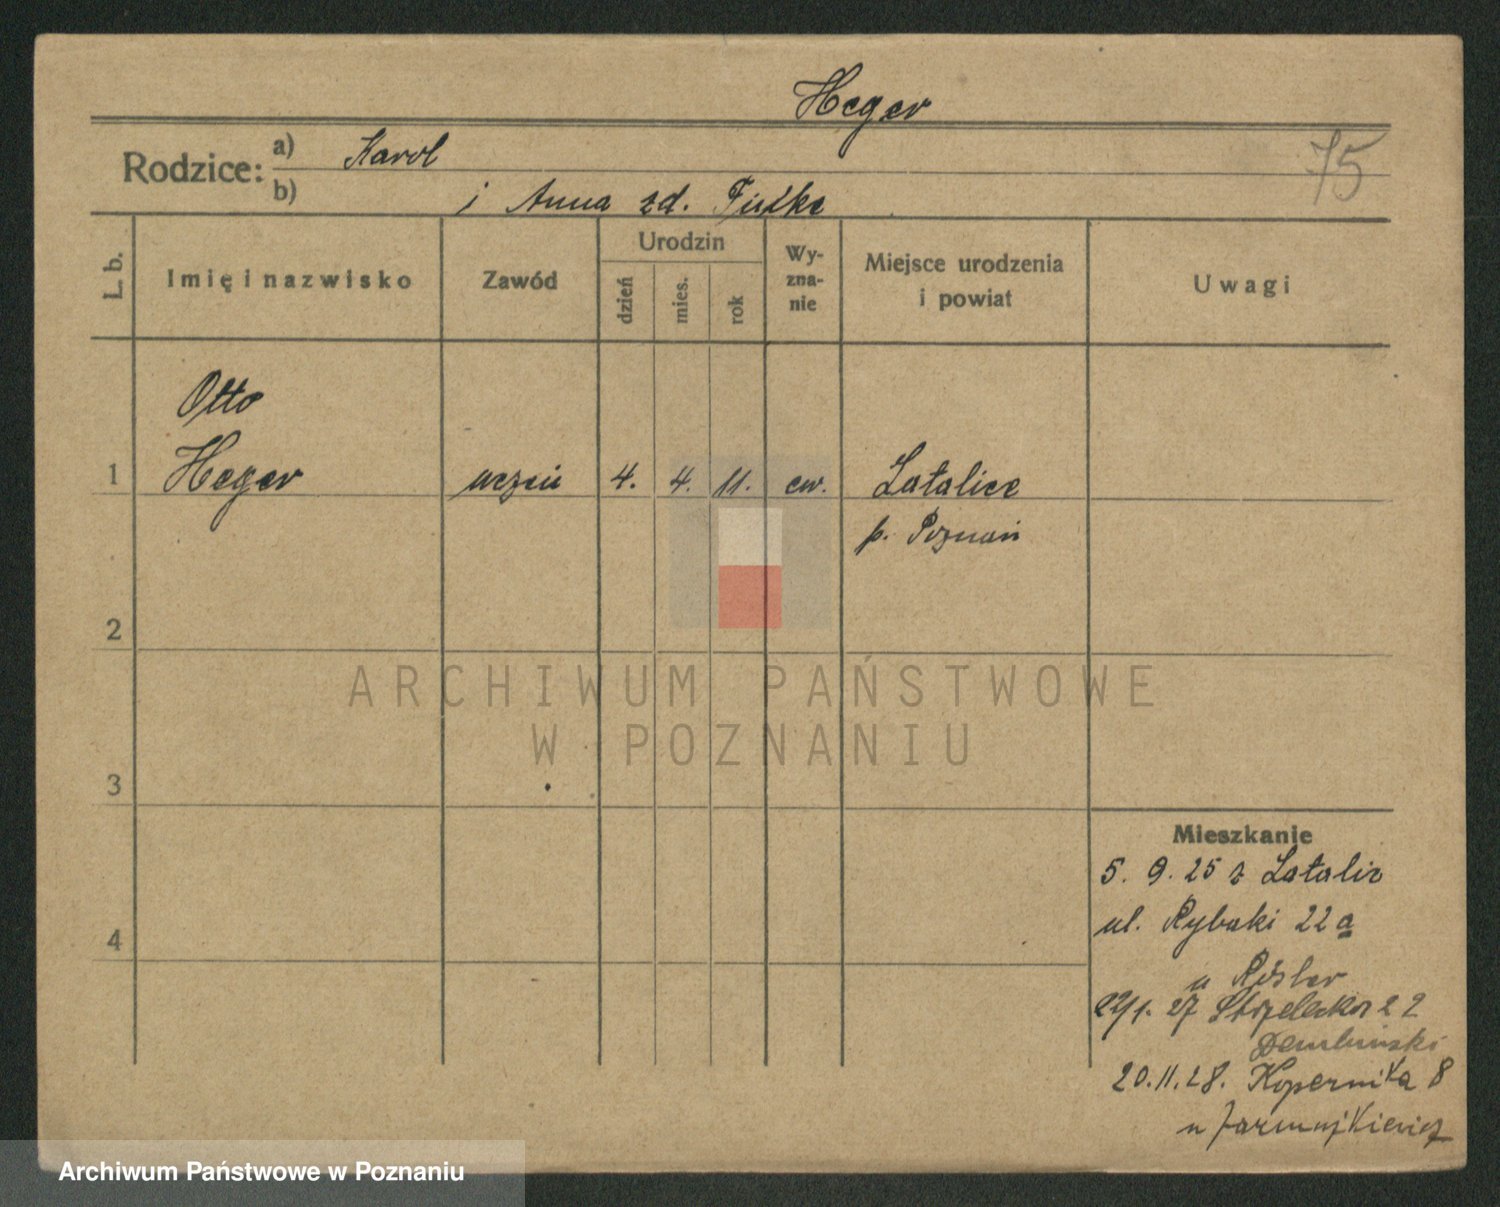 Heger
75
Rodzice:
a) Karol
b) i Anna zd.
L. b.
Imię i nazwisko
Zawód
Urodzin
dzień
mies.
rok
Wy-
zna-
nie
Miejsce urodzenia
i powiat
Uwagi
Otto
1 Heger uczeń 4. 4. 11. ew. Latalice
p. Poznań
2
ARCHIWUM PAŃSTWOWE
W POZNANIU
3
Mieszkanie
5. 9. 25 z Latalic
ul. Rybaki 22a
4
u Rösler
22/1. 27 Strzelecka 22
Dembiński
20.11.28. Kopernika 8
u
Archiwum Państwowe w Poznaniu